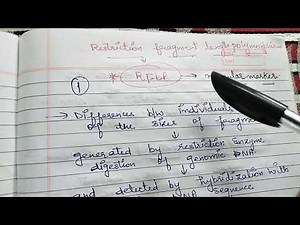 Restriction fragment length polymorphism
* R.F.L.P → molecular marker.
①
→ Differences b/w individuals
of the sizes of fragme
generated by restriction Enzyme
digestion of genomic DNA
and detected by hybridization with
sequence